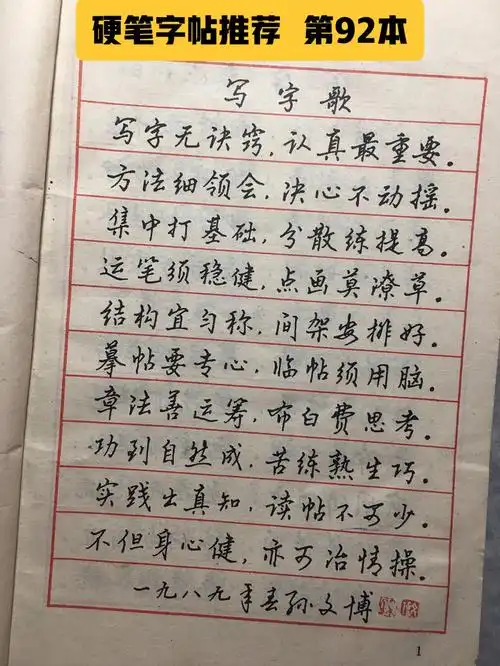 硬笔字帖推荐 第92本
写字歌
写字无诀窍，认真最重要。
方法细领会，决心不动摇。
集中打基础，分散练提高。
运笔须稳健，点画莫潦草。
结构宜匀称，间架安排好。
摹帖要专心，临帖须用脑。
章法善运筹，布白费思考。
功到自然成，苦练熟生巧。
实践出真知，读帖不可少。
不但身心健，亦可冶情操。
一九八九年春孙文博
1